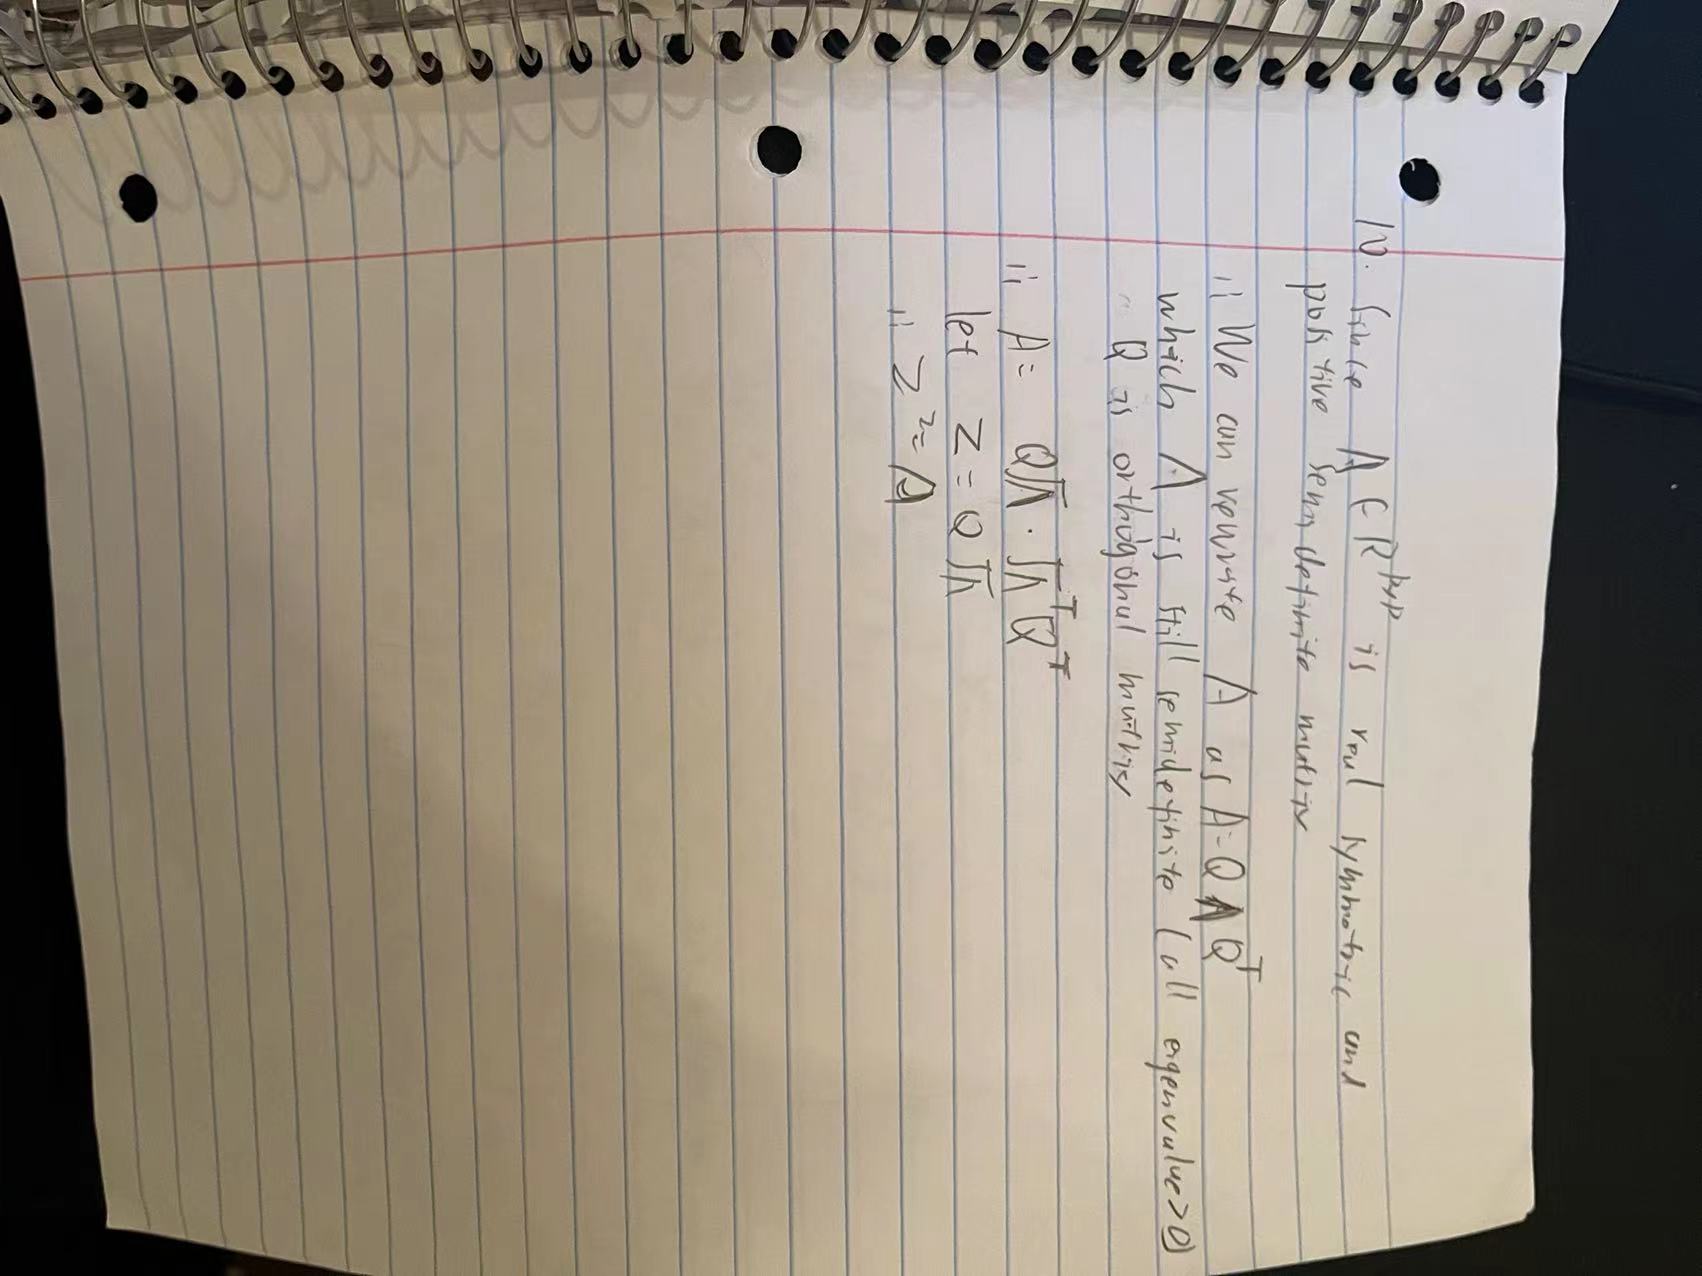 10. Since A ∈ R^{p×p} is real symmetric and
positive semi definite matrix
∴ We can rewrite A as A = QΛQ^T
which Λ is still semidefinite (all eigenvalue > 0)
∵ Q is orthogonal matrix
∴ A = Q√Λ · √Λ^T Q^T
let Z = Q√Λ
∴ Z^2 = A